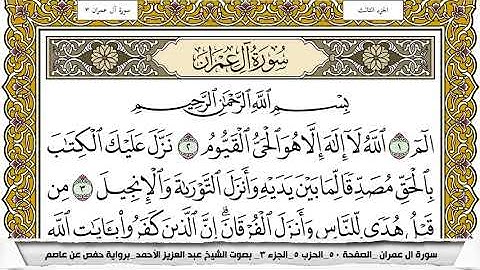 الجزء الثالث
سورة آل عمران ٣
سُورَةُ آلِ عِمْرَان
بِسْمِ اللَّهِ الرَّحْمَٰنِ الرَّحِيمِ
الٓمٓ ١ اللَّهُ لَآ إِلَٰهَ إِلَّا هُوَ الْحَىُّ الْقَيُّومُ ٢ نَزَّلَ عَلَيْكَ الْكِتَٰبَ
بِالْحَقِّ مُصَدِّقًا لِّمَا بَيْنَ يَدَيْهِ وَأَنزَلَ التَّوْرَىٰةَ وَالْإِنجِيلَ ٣ مِن
قَبْلُ هُدًى لِّلنَّاسِ وَأَنزَلَ الْفُرْقَانَ ۗ إِنَّ الَّذِينَ كَفَرُوا۟ بِـَٔايَٰتِ اللَّهِ
سورة ال عمران _الصفحة ٥٠_ الحزب ٥_ الجزء ٣_ بصوت الشيخ عبد العزيز الأحمد_ برواية حفص عن عاصم